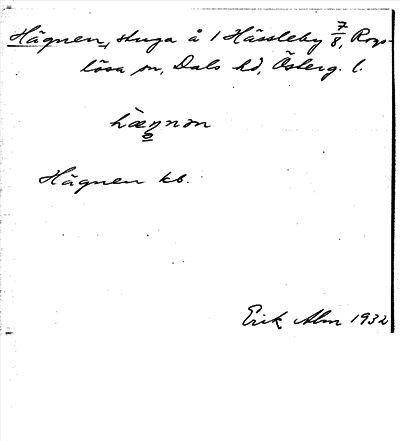 Hägnen, stuga å 1 Hässleby 7/8, Rogs-
lösa sn, Dals hd, Österg. l.
hæŋnən
Hägnen kb.
Erik Alm 1932